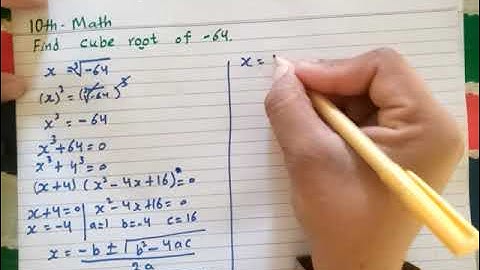 10th - Math
Find cube root of -64.
x = ∛-64
(x)³ = (∛-64)³
x³ = -64
x³+64=0
x³+4³=0
(x+4) (x²-4x+16)=0
x+4=0 | x²-4x+16=0
x=-4 | a=1 b=-4 c=16
x = -b ± √b²-4ac / 2a
x =